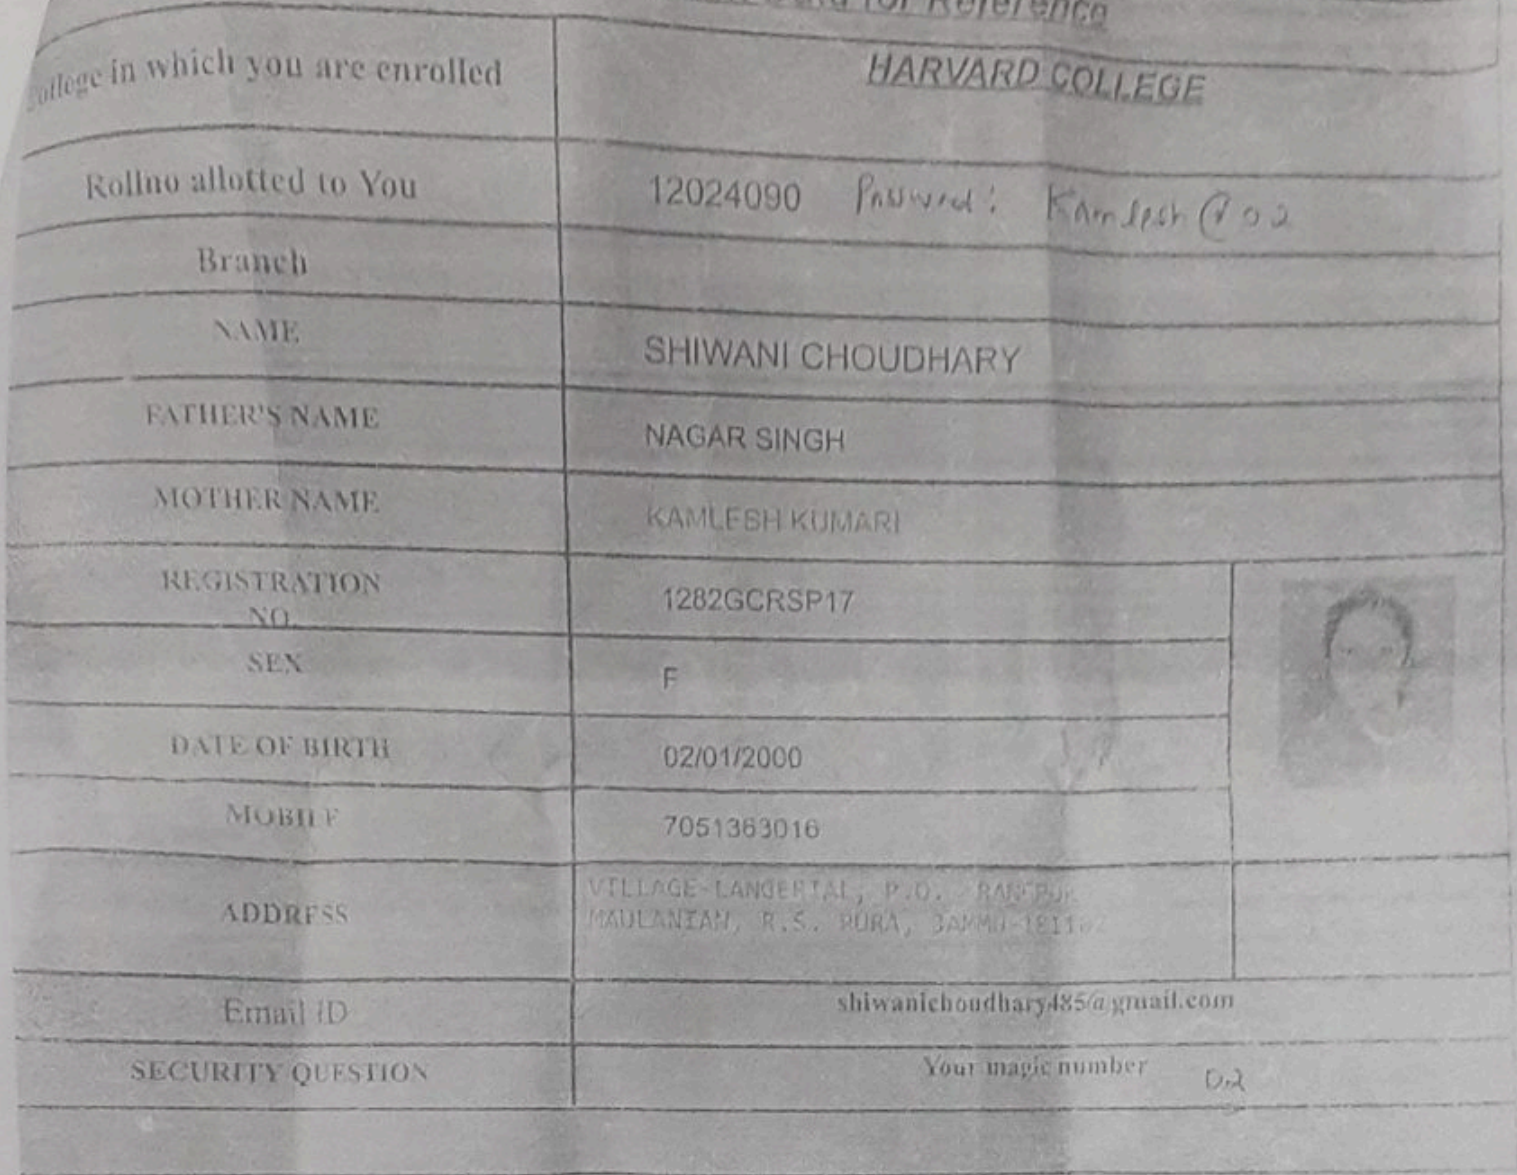 for Reference
College in which you are enrolled HARVARD COLLEGE
Rollno allotted to You 12024090 Password: Kamlesh@02
Branch
NAME SHIWANI CHOUDHARY
FATHER'S NAME NAGAR SINGH
MOTHER NAME KAMLESH KUMARI
REGISTRATION 1282GCRSP17
NO.
SEX F
DATE OF BIRTH 02/01/2000
MOBILE 7051363016
VILLAGE-LANGERIAL, P.O. RANGPUR
ADDRESS MAULANIAN, R.S. PURA, JAMMU-
Email ID shiwanichoudhary485@gmail.com
SECURITY QUESTION Your magic number 02